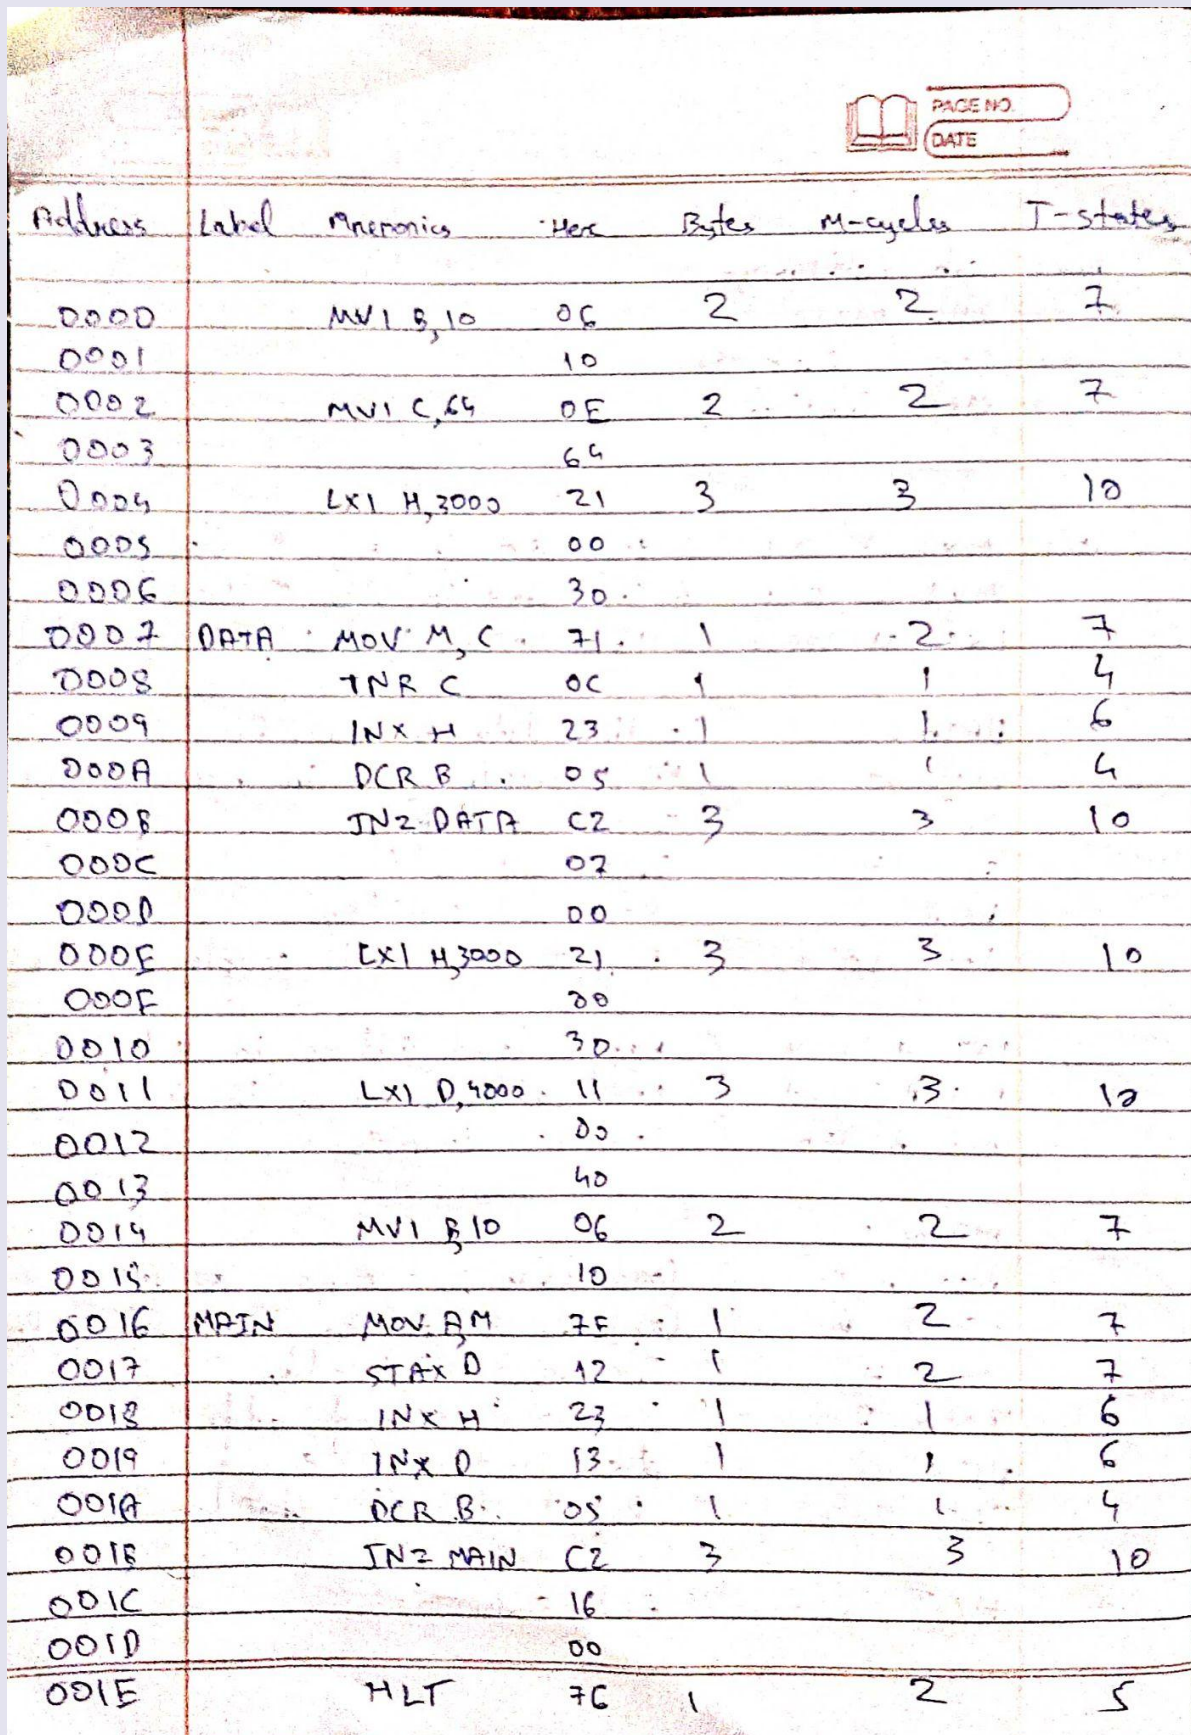 PAGE NO.
DATE
Address Label Mnemonics Hex Bytes M-cycles T-states
0000 MVI B,10 06 2 2 7
0001 10
0002 MVI C,64 0E 2 2 7
0003 64
0004 LXI H,3000 21 3 3 10
0005 00
0006 30
0007 DATA MOV M,C 71 1 2 7
0008 INR C 0C 1 1 4
0009 INX H 23 1 1 6
000A DCR B 05 1 1 4
000B JNZ DATA C2 3 3 10
000C 07
000D 00
000E LXI H,3000 21 3 3 10
000F 00
0010 30
0011 LXI D,4000 11 3 3 10
0012 00
0013 40
0014 MVI B,10 06 2 2 7
0015 10
0016 MAIN MOV A,M 7E 1 2 7
0017 STAX D 12 1 2 7
0018 INX H 23 1 1 6
0019 INX D 13 1 1 6
001A DCR B 05 1 1 4
001B JNZ MAIN C2 3 3 10
001C 16
001D 00
001E HLT 76 1 2 5